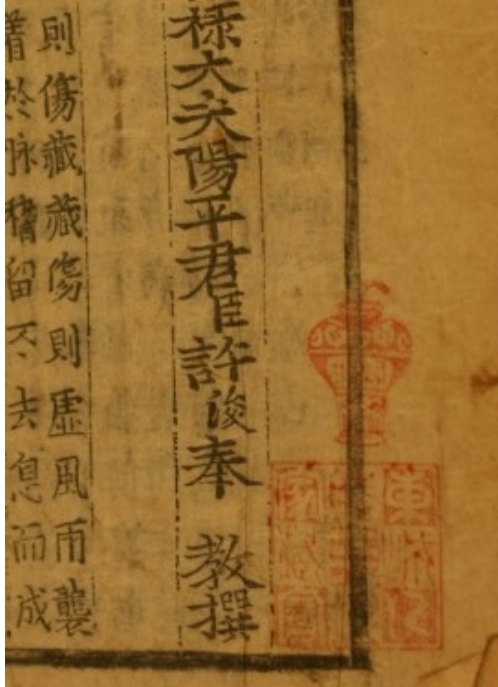 祿大夫陽平君臣許浚奉 教撰
則傷藏藏傷則虛風雨襲
着於脉稽留不去息而成